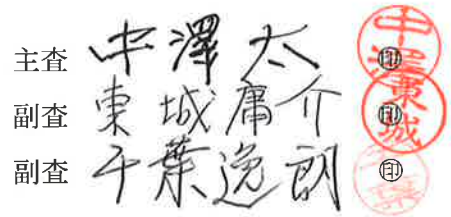 主査 中澤太 ㊞
副査 東城庸介 ㊞
副査 千葉逸朗 ㊞
中澤
東城
千葉